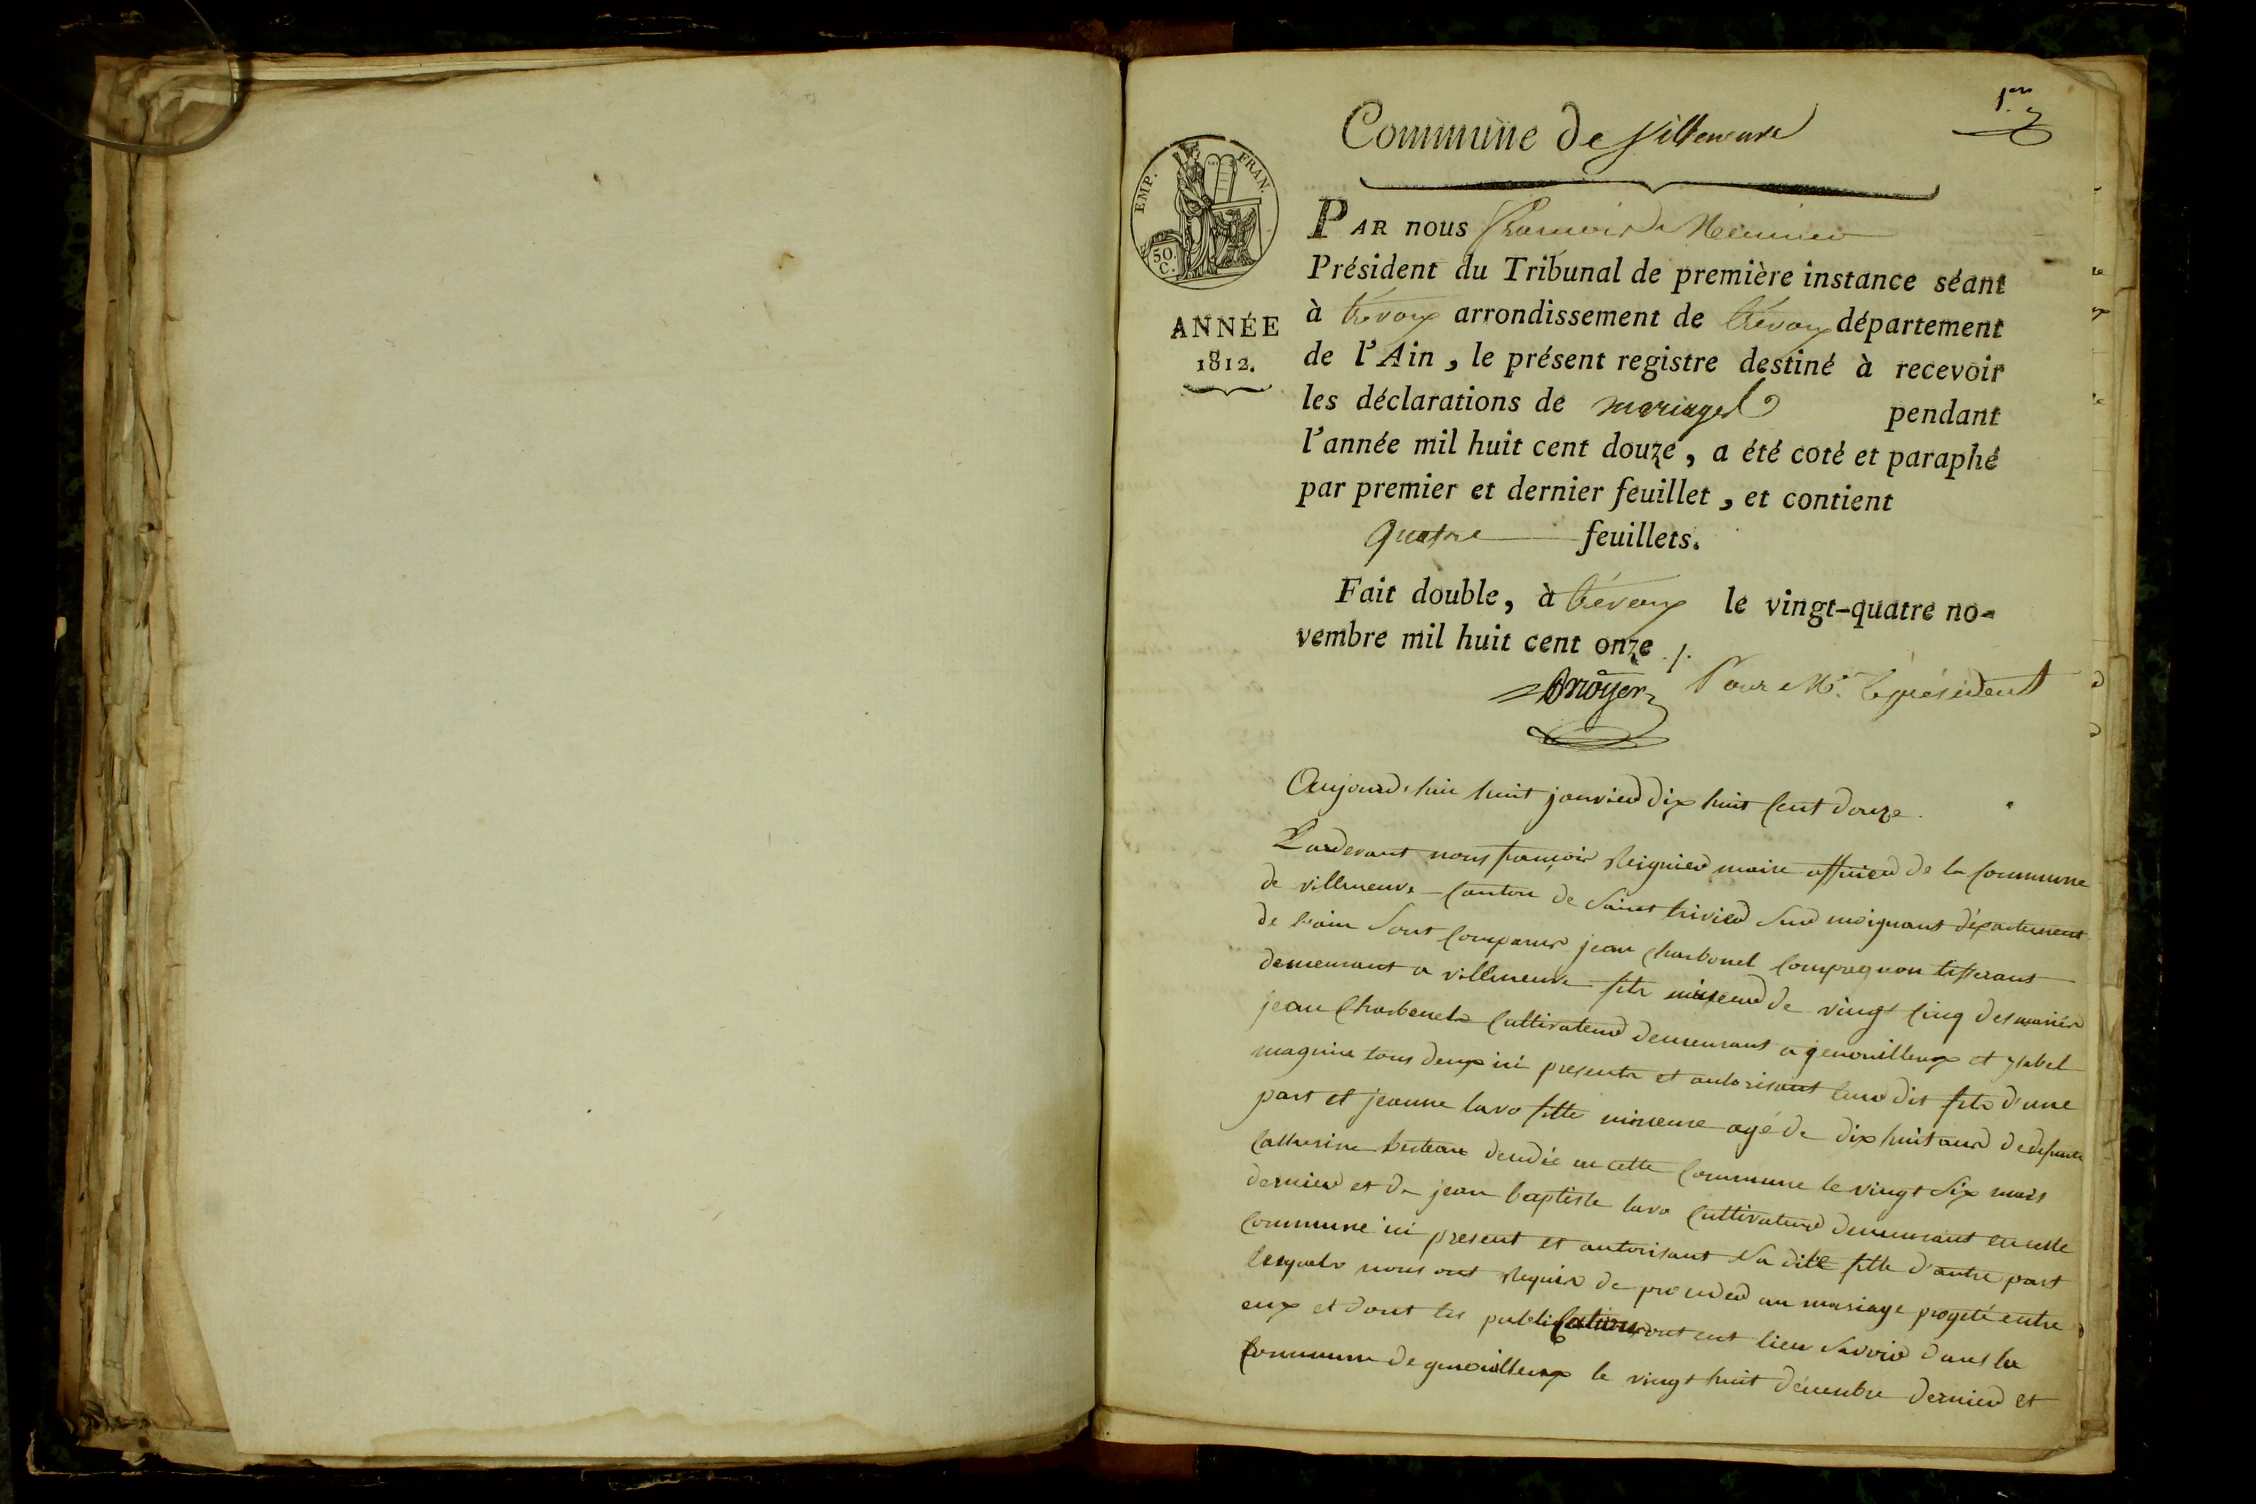 1er
Commune de Villeneuve
EMP. FRAN.
50.
C.
ANNÉE
1812.
PAR nous
Président du Tribunal de première instance séant
à trévoux arrondissement de trévoux département
de l'Ain, le présent registre destiné à recevoir
les déclarations de mariages pendant
l'année mil huit cent douze, a été coté et paraphé
par premier et dernier feuillet, et contient
quatre feuillets.
Fait double, à trévoux le vingt-quatre no-
vembre mil huit cent onze ./.
Pour Mr. le président
Aujourd'hui huit janvier dix huit cent douze.
Pardevant nous françois maire officier de la commune
de villeneuve canton de Saint trivier Sur moignant département
de l'ain Sont comparus jean charbonel compagnon tisserant
demeurant a villeneuve fils mineur de vingt cinq des mariés
jean Charbonel cultivateur demeurant a genouilleux et ysabel
magnin tous deux ici presents et autorisant leur dit fils d'une
part et jeanne lavo fille mineure agé de dix huit ans de defunte
Catherine en cette commune le vingt Six mars
dernier et de jean baptiste lavo cultivateur demeurant en cette
commune ici present et autorisant Sa dite fille d'autre part
lesquels nous ont requis de proceder au mariage progeté entre
eux et dont les publications ont eut lieu Savoir dans la
commune de genouilleux le vingt huit décembre dernier et